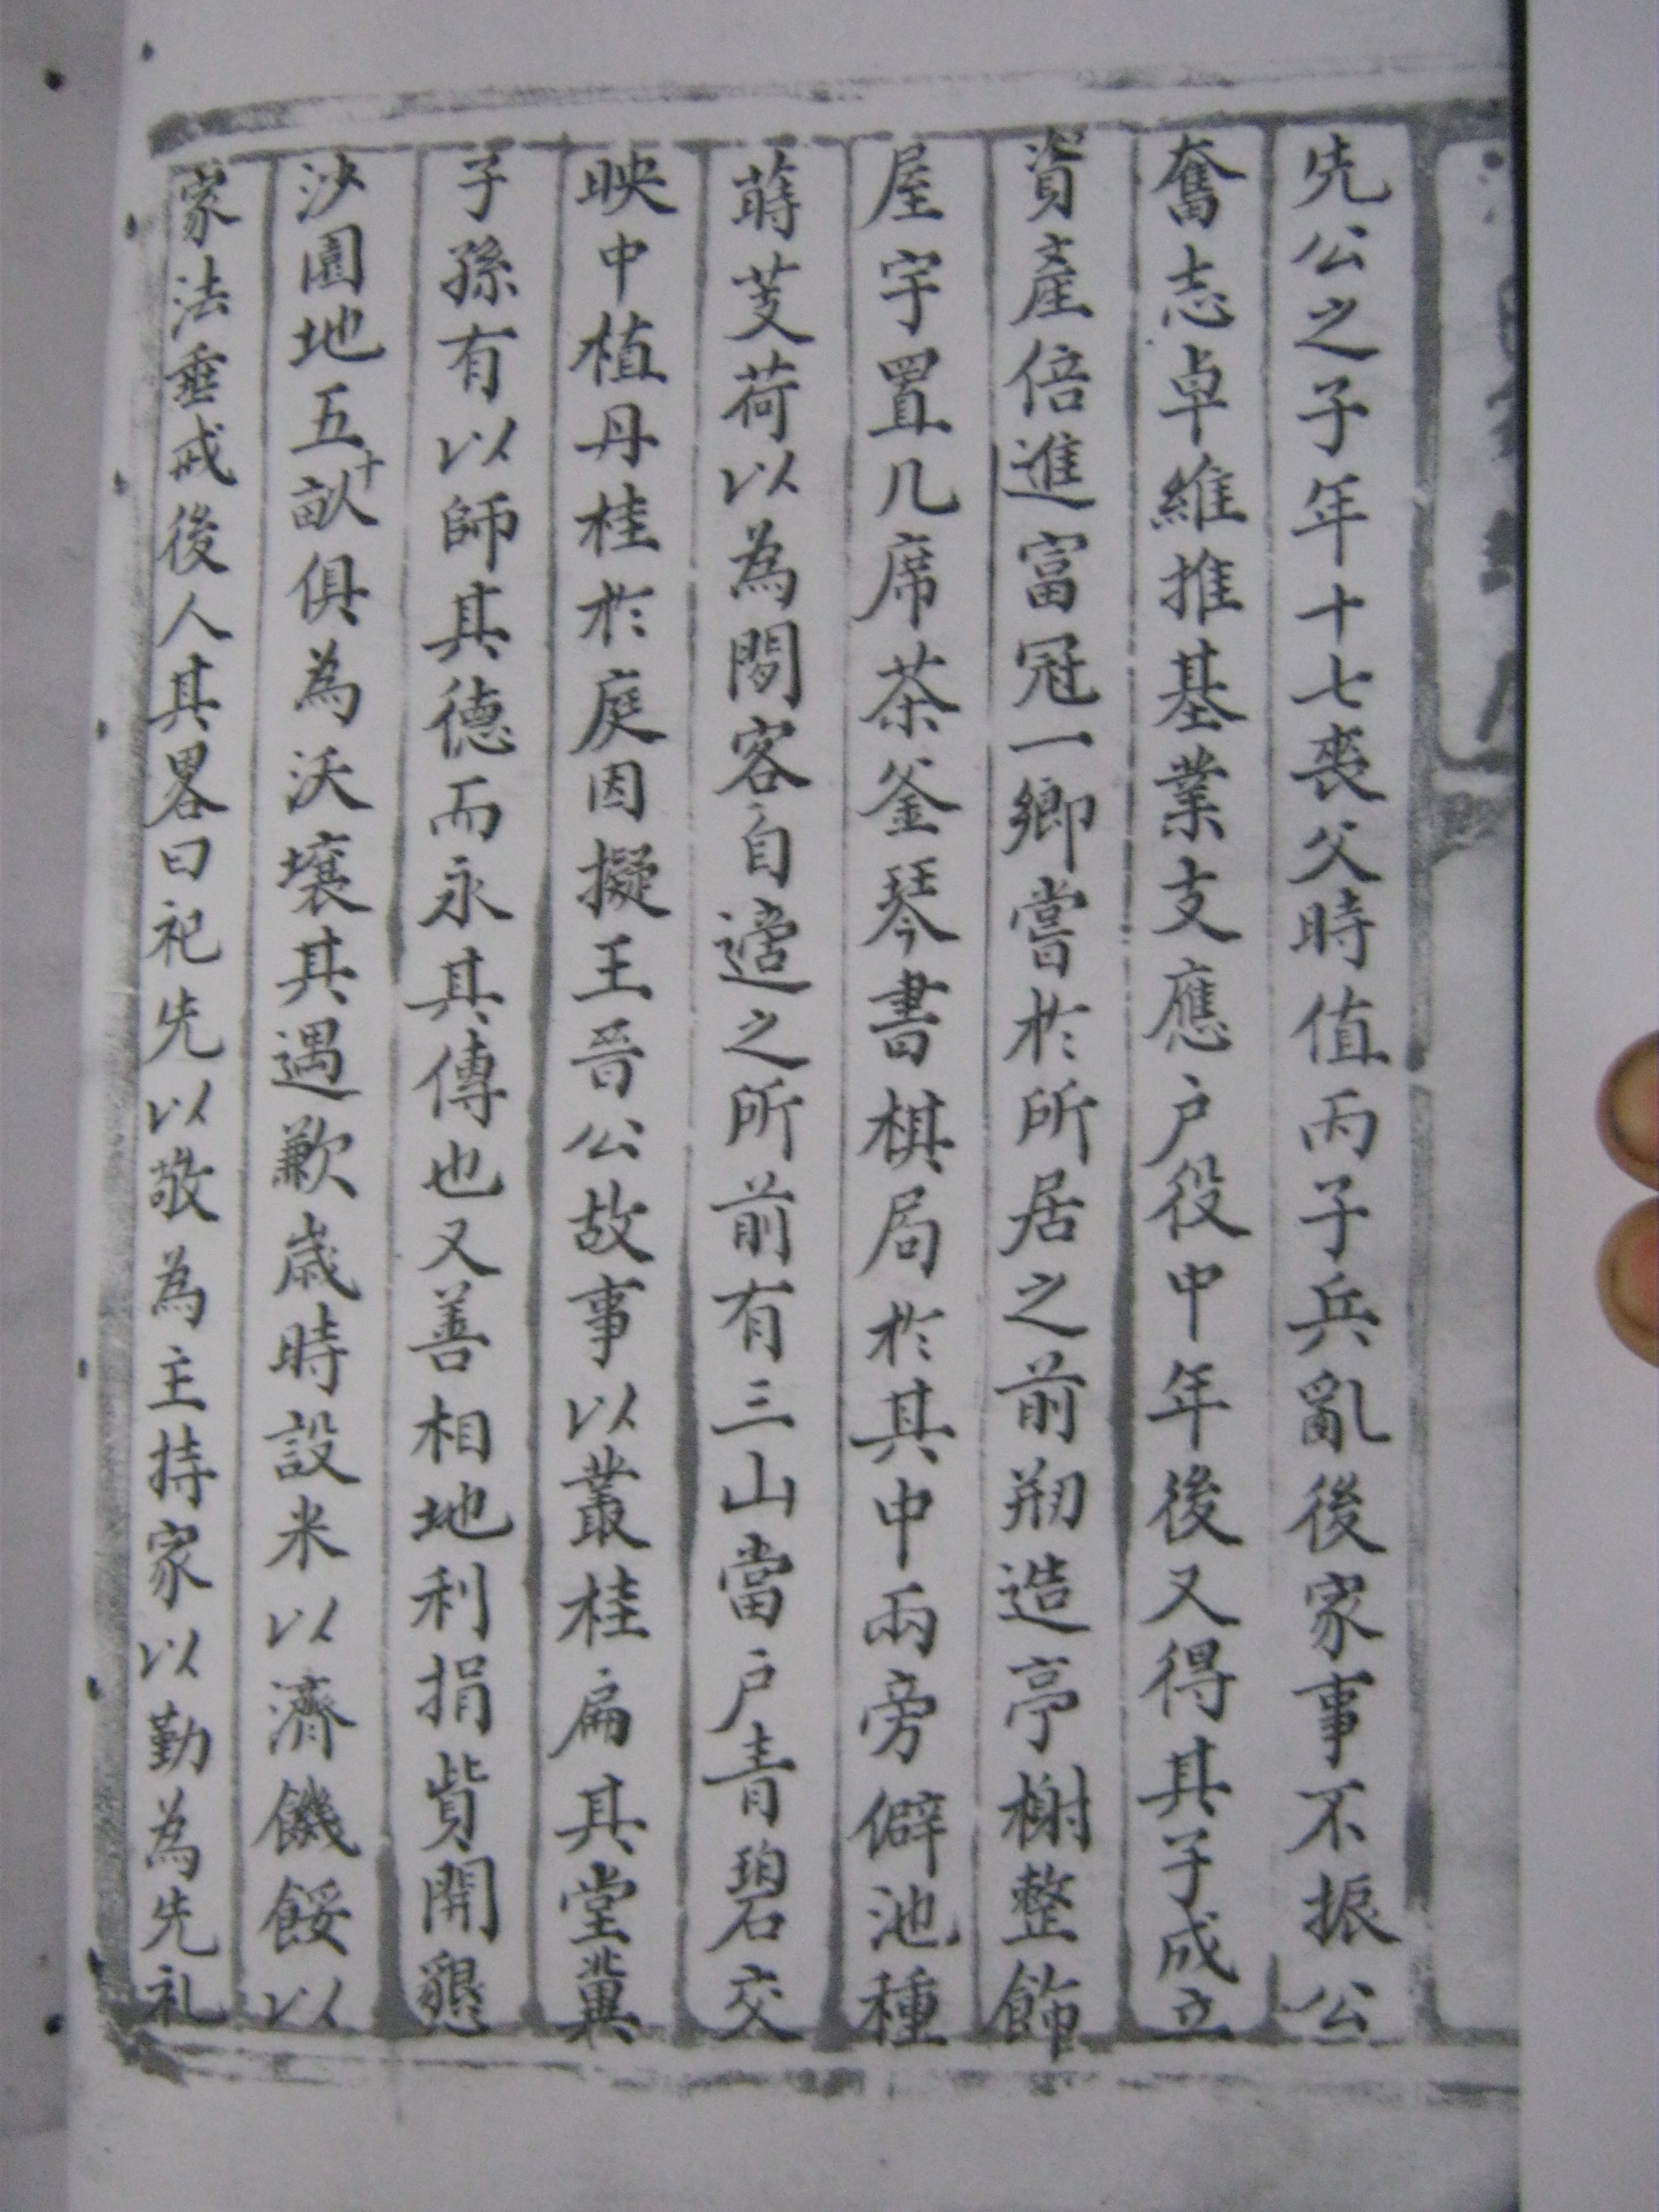 先公之子年十七喪父時值丙子兵亂後家事不振公
奮志卓維推基業支應户役中年後又得其子成立
資產倍進富冠一鄉嘗於所居之前剏造亭榭整飾
屋宇置几席茶釜琴書棋局於其中兩旁僻池種
蒔芰荷以為閒客自適之所前有三山當户青碧交
映中植丹桂於庭因擬王晉公故事以叢桂扁其堂冀
子孫有以師其德而永其傳也又善相地利捐貲開懇
沙園地五十畝俱為沃壤其遇歉歲時設米以濟饑餒以
家法垂戒後人其畧曰祀先以敬為主持家以勤為先礼